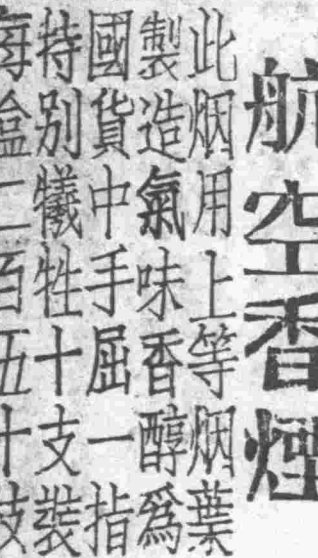 航空香煙
此烟用上等烟葉
製造氣味香醇爲
國貨中手屈一指
特別犧牲十支裝
每盒二百五十枝